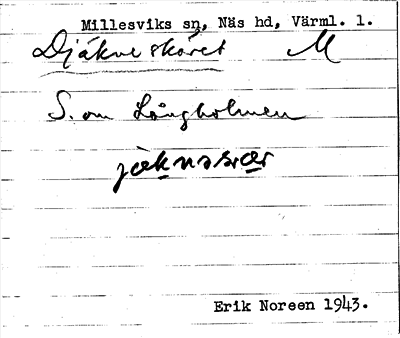 Millesviks sn, Näs hd, Värml. l.
Djäkneskäret M
S. om Långholmen
jäknəskær
Erik Noreen 1943.